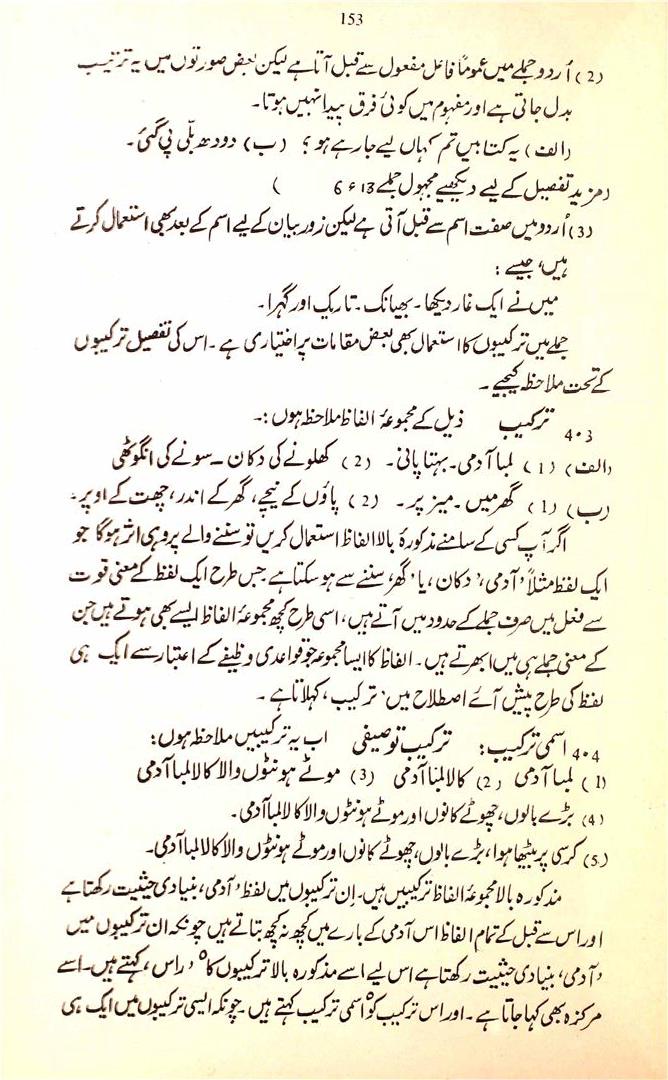 153
(2) اُردو جملے میں عموماً فاعل مفعول سے قبل آتا ہے لیکن بعض صورتوں میں یہ ترتیب
بدل جاتی ہے اور مفہوم میں کوئی فرق پیدا نہیں ہوتا۔
(الف) یہ کتابیں تم کہاں لیے جا رہے ہو؟ (ب) دودھ بلّی پی گئی۔
(مزید تفصیل کے لیے دیکھیے مجہول جملے 13ء6 )
(3) اُردو میں صفت اسم سے قبل آتی ہے لیکن زورِ بیان کے لیے اسم کے بعد بھی استعمال کرتے
ہیں، جیسے:
میں نے ایک غار دیکھا۔ بھیانک۔ تاریک اور گہرا۔
جملے میں ترکیبوں کا استعمال بھی بعض مقامات پر اختیاری ہے۔ اس کی تفصیل ترکیبوں
کے تحت ملاحظہ کیجیے۔
4۰3 ترکیب ذیل کے مجموعۂ الفاظ ملاحظہ ہوں:۔
(الف) (1) لمبا آدمی۔ بہتا پانی۔ (2) کھلونے کی دکان ۔ سونے کی انگوٹھی
(ب) (1) گھر میں ۔ میز پر۔ (2) پاؤں کے نیچے، گھر کے اندر، چھت کے اوپر۔
اگر آپ کسی کے سامنے مذکورۂ بالا الفاظ استعمال کریں تو سننے والے پر وہی اثر ہوگا جو
ایک لفظ مثلاً 'آدمی'، 'دکان'، یا 'گھر' سننے سے ہو سکتا ہے جس طرح ایک لفظ کے معنی قوت
سے فعل میں صرف جملے کے حدود میں آتے ہیں، اسی طرح کچھ مجموعۂ الفاظ ایسے بھی ہوتے ہیں جن
کے معنی جملے ہی میں ابھرتے ہیں۔ الفاظ کا ایسا مجموعہ جو قواعدی وظیفے کے اعتبار سے ایک ہی
لفظ کی طرح پیش آئے اصطلاح میں 'ترکیب' کہلاتا ہے۔
4۰4 اسمی ترکیب: ترکیب توصیفی اب یہ ترکیبیں ملاحظہ ہوں:
(1) لمبا آدمی (2) کالا لمبا آدمی (3) موٹے ہونٹوں والا کالا لمبا آدمی
(4) بڑے بالوں، چھوٹے کانوں اور موٹے ہونٹوں والا کالا لمبا آدمی۔
(5) کرسی پر بیٹھا ہوا، بڑے بالوں، چھوٹے کانوں اور موٹے ہونٹوں والا کالا لمبا آدمی۔
مذکورہ بالا مجموعۂ الفاظ ترکیبیں ہیں۔ اِن ترکیبوں میں لفظ 'آدمی' بنیادی حیثیت رکھتا ہے
اور اس سے قبل کے تمام الفاظ اس آدمی کے بارے میں کچھ نہ کچھ بتاتے ہیں چونکہ ان ترکیبوں میں
'آدمی' بنیادی حیثیت رکھتا ہے اس لیے اسے مذکورہ بالا ترکیبوں کا 'راس' کہتے ہیں۔ اسے
مرکزہ بھی کہا جاتا ہے۔ اور اس ترکیب کو اسمی ترکیب کہتے ہیں۔ چونکہ ایسی ترکیبوں میں ایک ہی